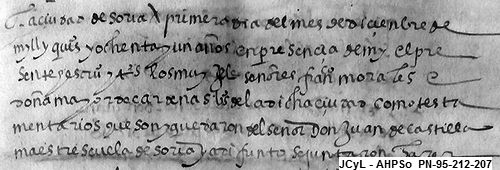 la ciudad de soria a primero dia del mes de diciembre de
myll y quis y ochenta y un años en presencia de my el pre
sente y escriu y ts los muy Ille señores fran morales e
doña mayor de cardenas vs de la dicha ciudad como testa
mentarios que son y quedaron del señor Don Juan de castilla
maestrescuela de soria ya difunto se juntaron para
JCyL - AHPSo PN-95-212-207